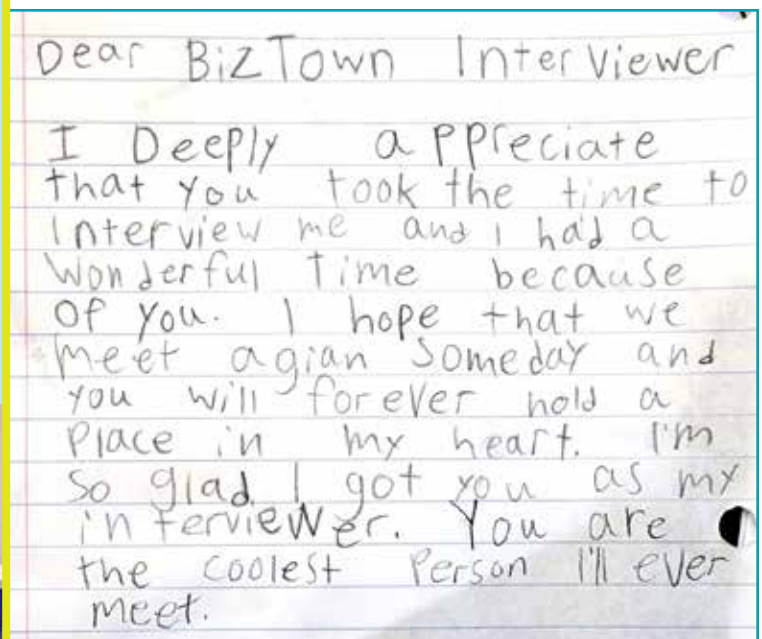 Dear BizTown Interviewer
I Deeply appreciate
that you took the time to
Interview me and I had a
wonderful time because
of you. I hope that we
meet agian someday and
you will forever hold a
place in my heart. I'm
so glad I got you as my
interviewer. You are
the coolest Person I'll ever
meet.